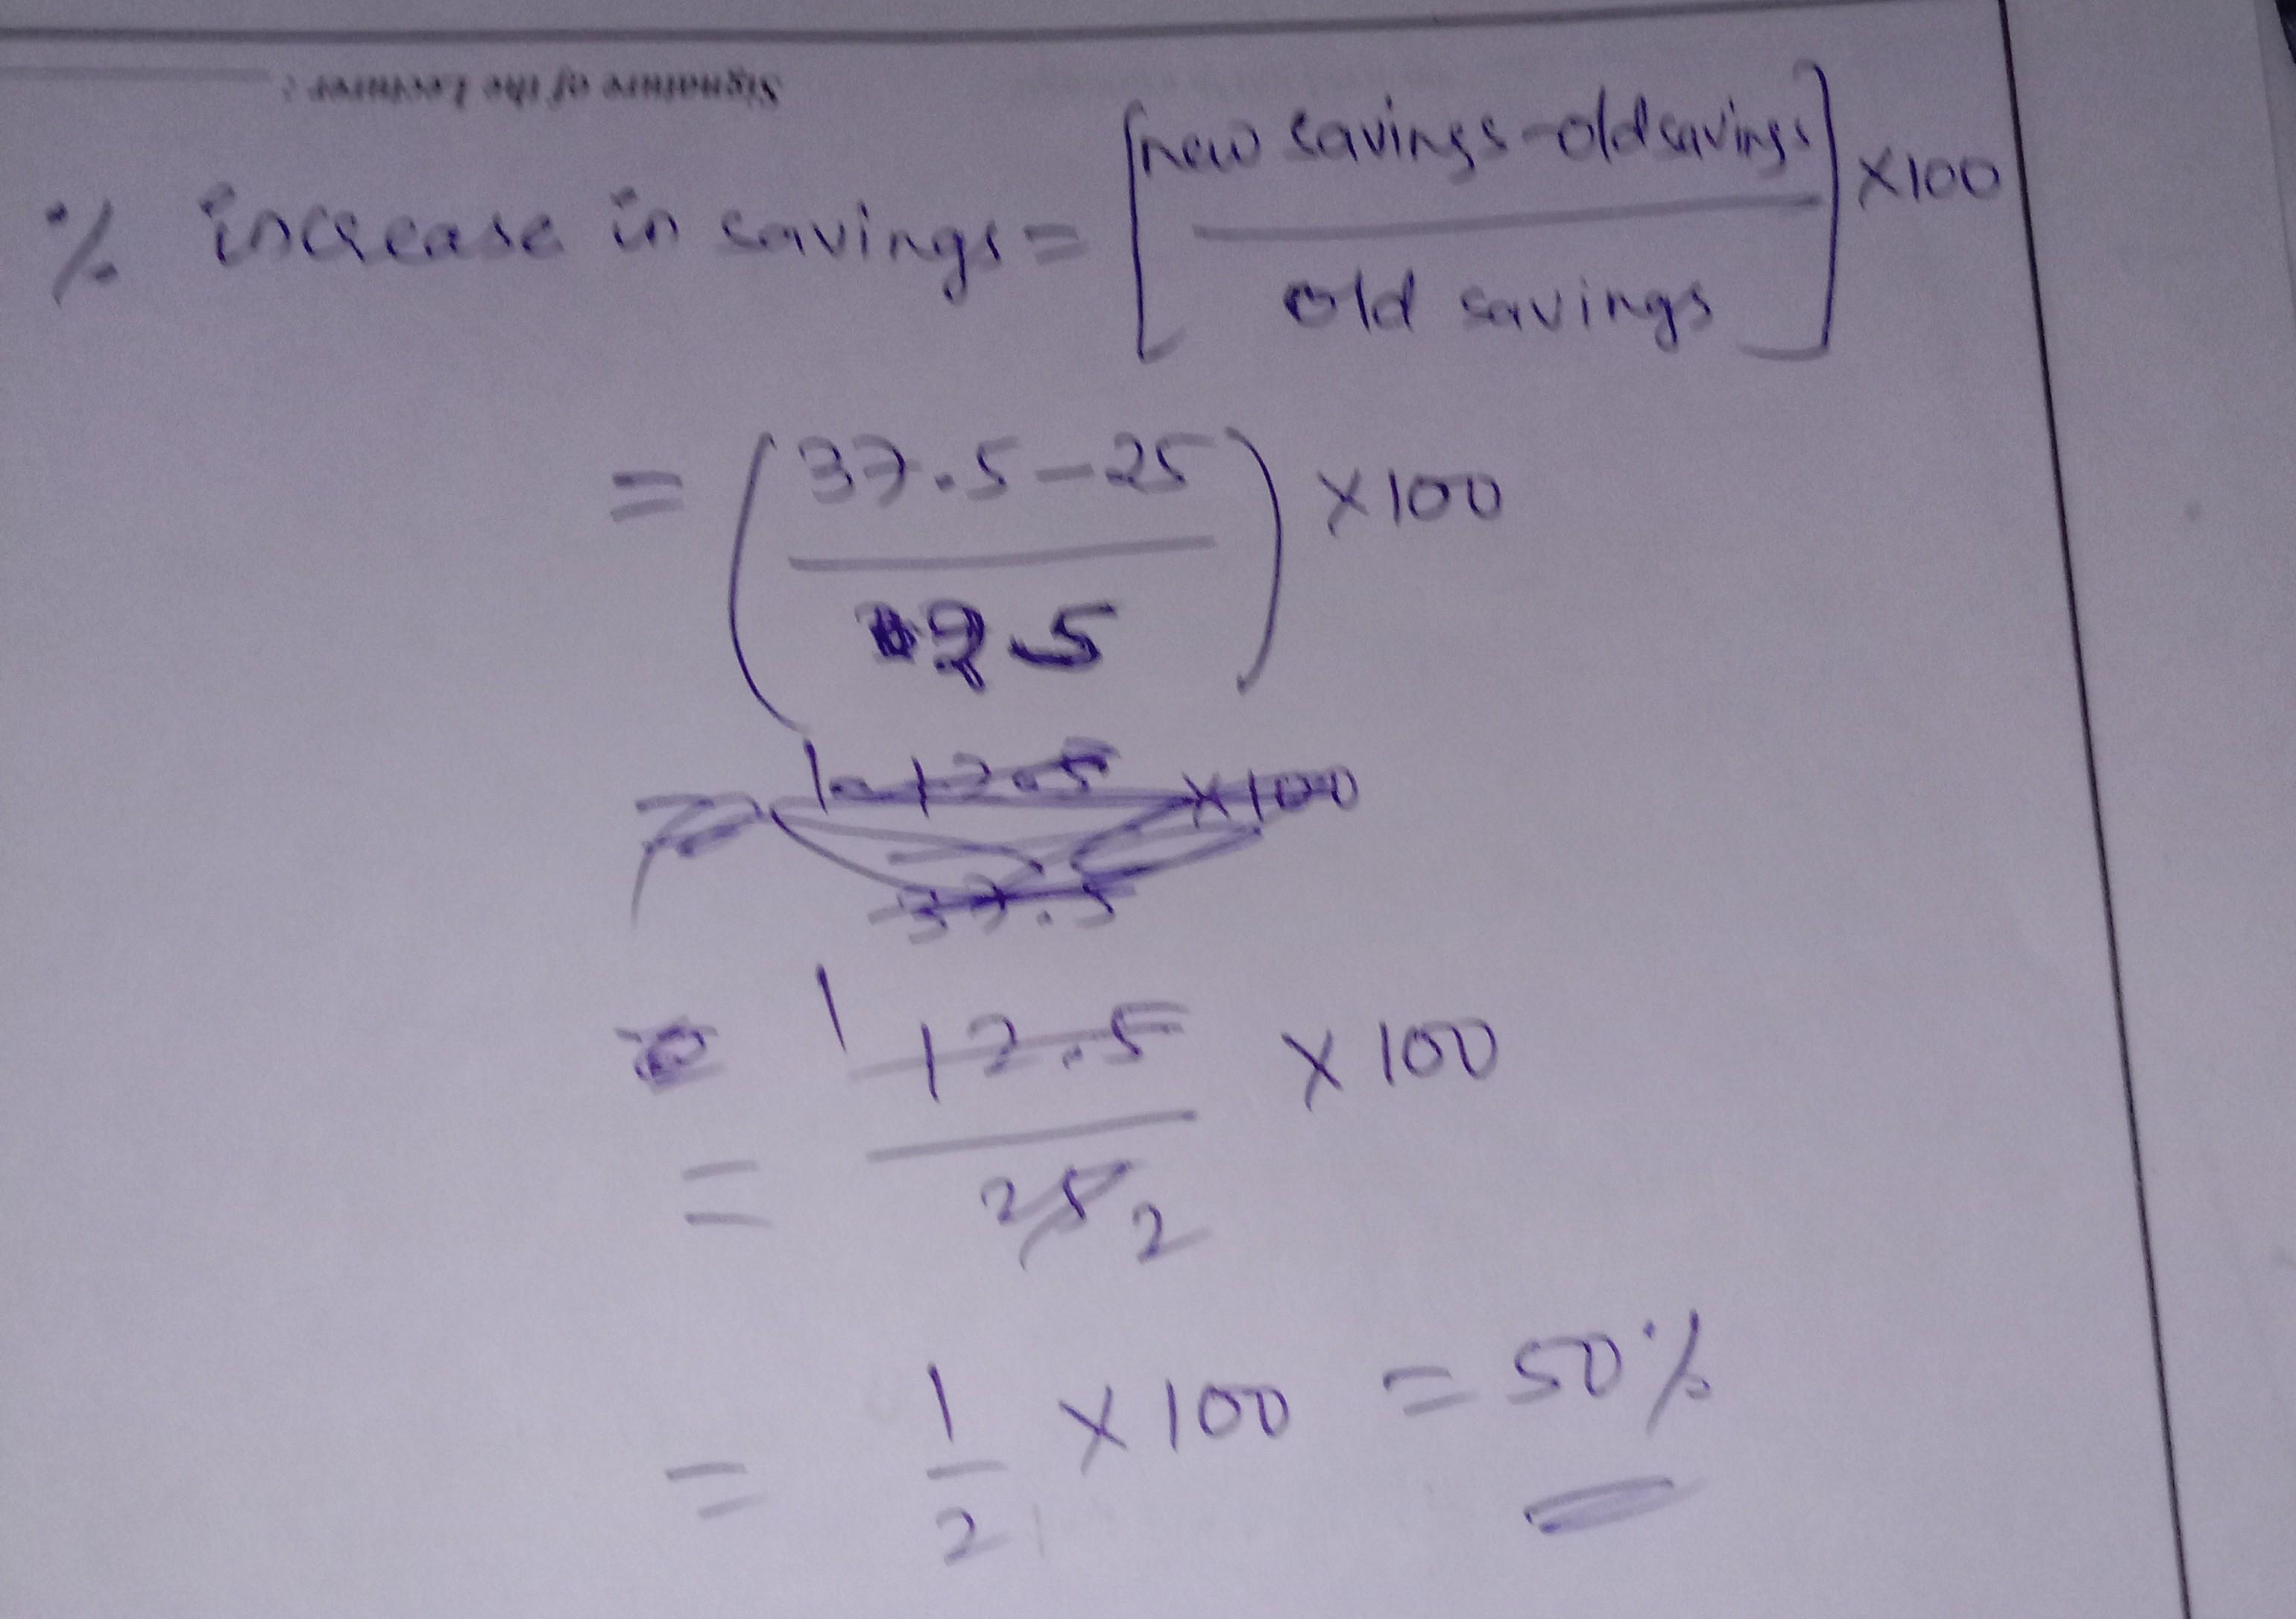 Signature of the Lecturer :
% increase in savings = [new savings - old savings / old savings] × 100
= (37.5 - 25 / 25) × 100
12.5 × 100
37.5
= 1 12.5 / 25 2 × 100
= 1/2 × 100 = 50%